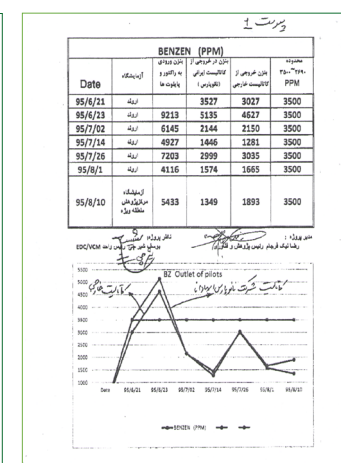 پیوست 1
BENZEN (PPM)
Date آزمایشگاه بنزن ورودی به راکتور و پایلوت ها بنزن در خروجی از کاتالیست ایرانی بنزن خروجی از کاتالیست خارجی محدوده ۲۶۹۰-۳۵۰۰ PPM
95/6/21 اروند 3527 3027 3500
95/6/23 اروند 9213 5135 4627 3500
95/7/02 اروند 6145 2144 2150 3500
95/7/14 اروند 4927 1446 1281 3500
95/7/26 اروند 7203 2999 3035 3500
95/8/1 اروند 4116 1574 1665 3500
95/8/10 آزمایشگاه مرکز پژوهش منطقه ویژه 5433 1349 1893 3500
مدیر پروژه :
ناظر پروژه :
رضا نیک فرجام رئیس پژوهش و
رئیس واحد EDC/VCM
BZ Outlet of pilots
5500
5000
4500
4000
3500
3000
2500
2000
1500
1000
Date 95/6/21 95/6/23 95/7/02 95/7/14 95/7/26 95/8/1 95/8/10
BENZEN (PPM)